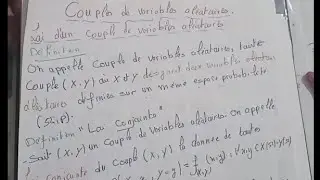 Couples de variables aléatoires.
Loi d'un couple de variables aléatoires
Définition
On appelle Couple de variables aléatoires tout
Couple (X,Y) où X et Y deux variables
aléatoires définies sur un même espace probabilisé
Définition "Loi Conjointe"
- Soit (X,Y) un couple de variables aléatoires on appelle
conjointe du couple (X,Y) la donnée de